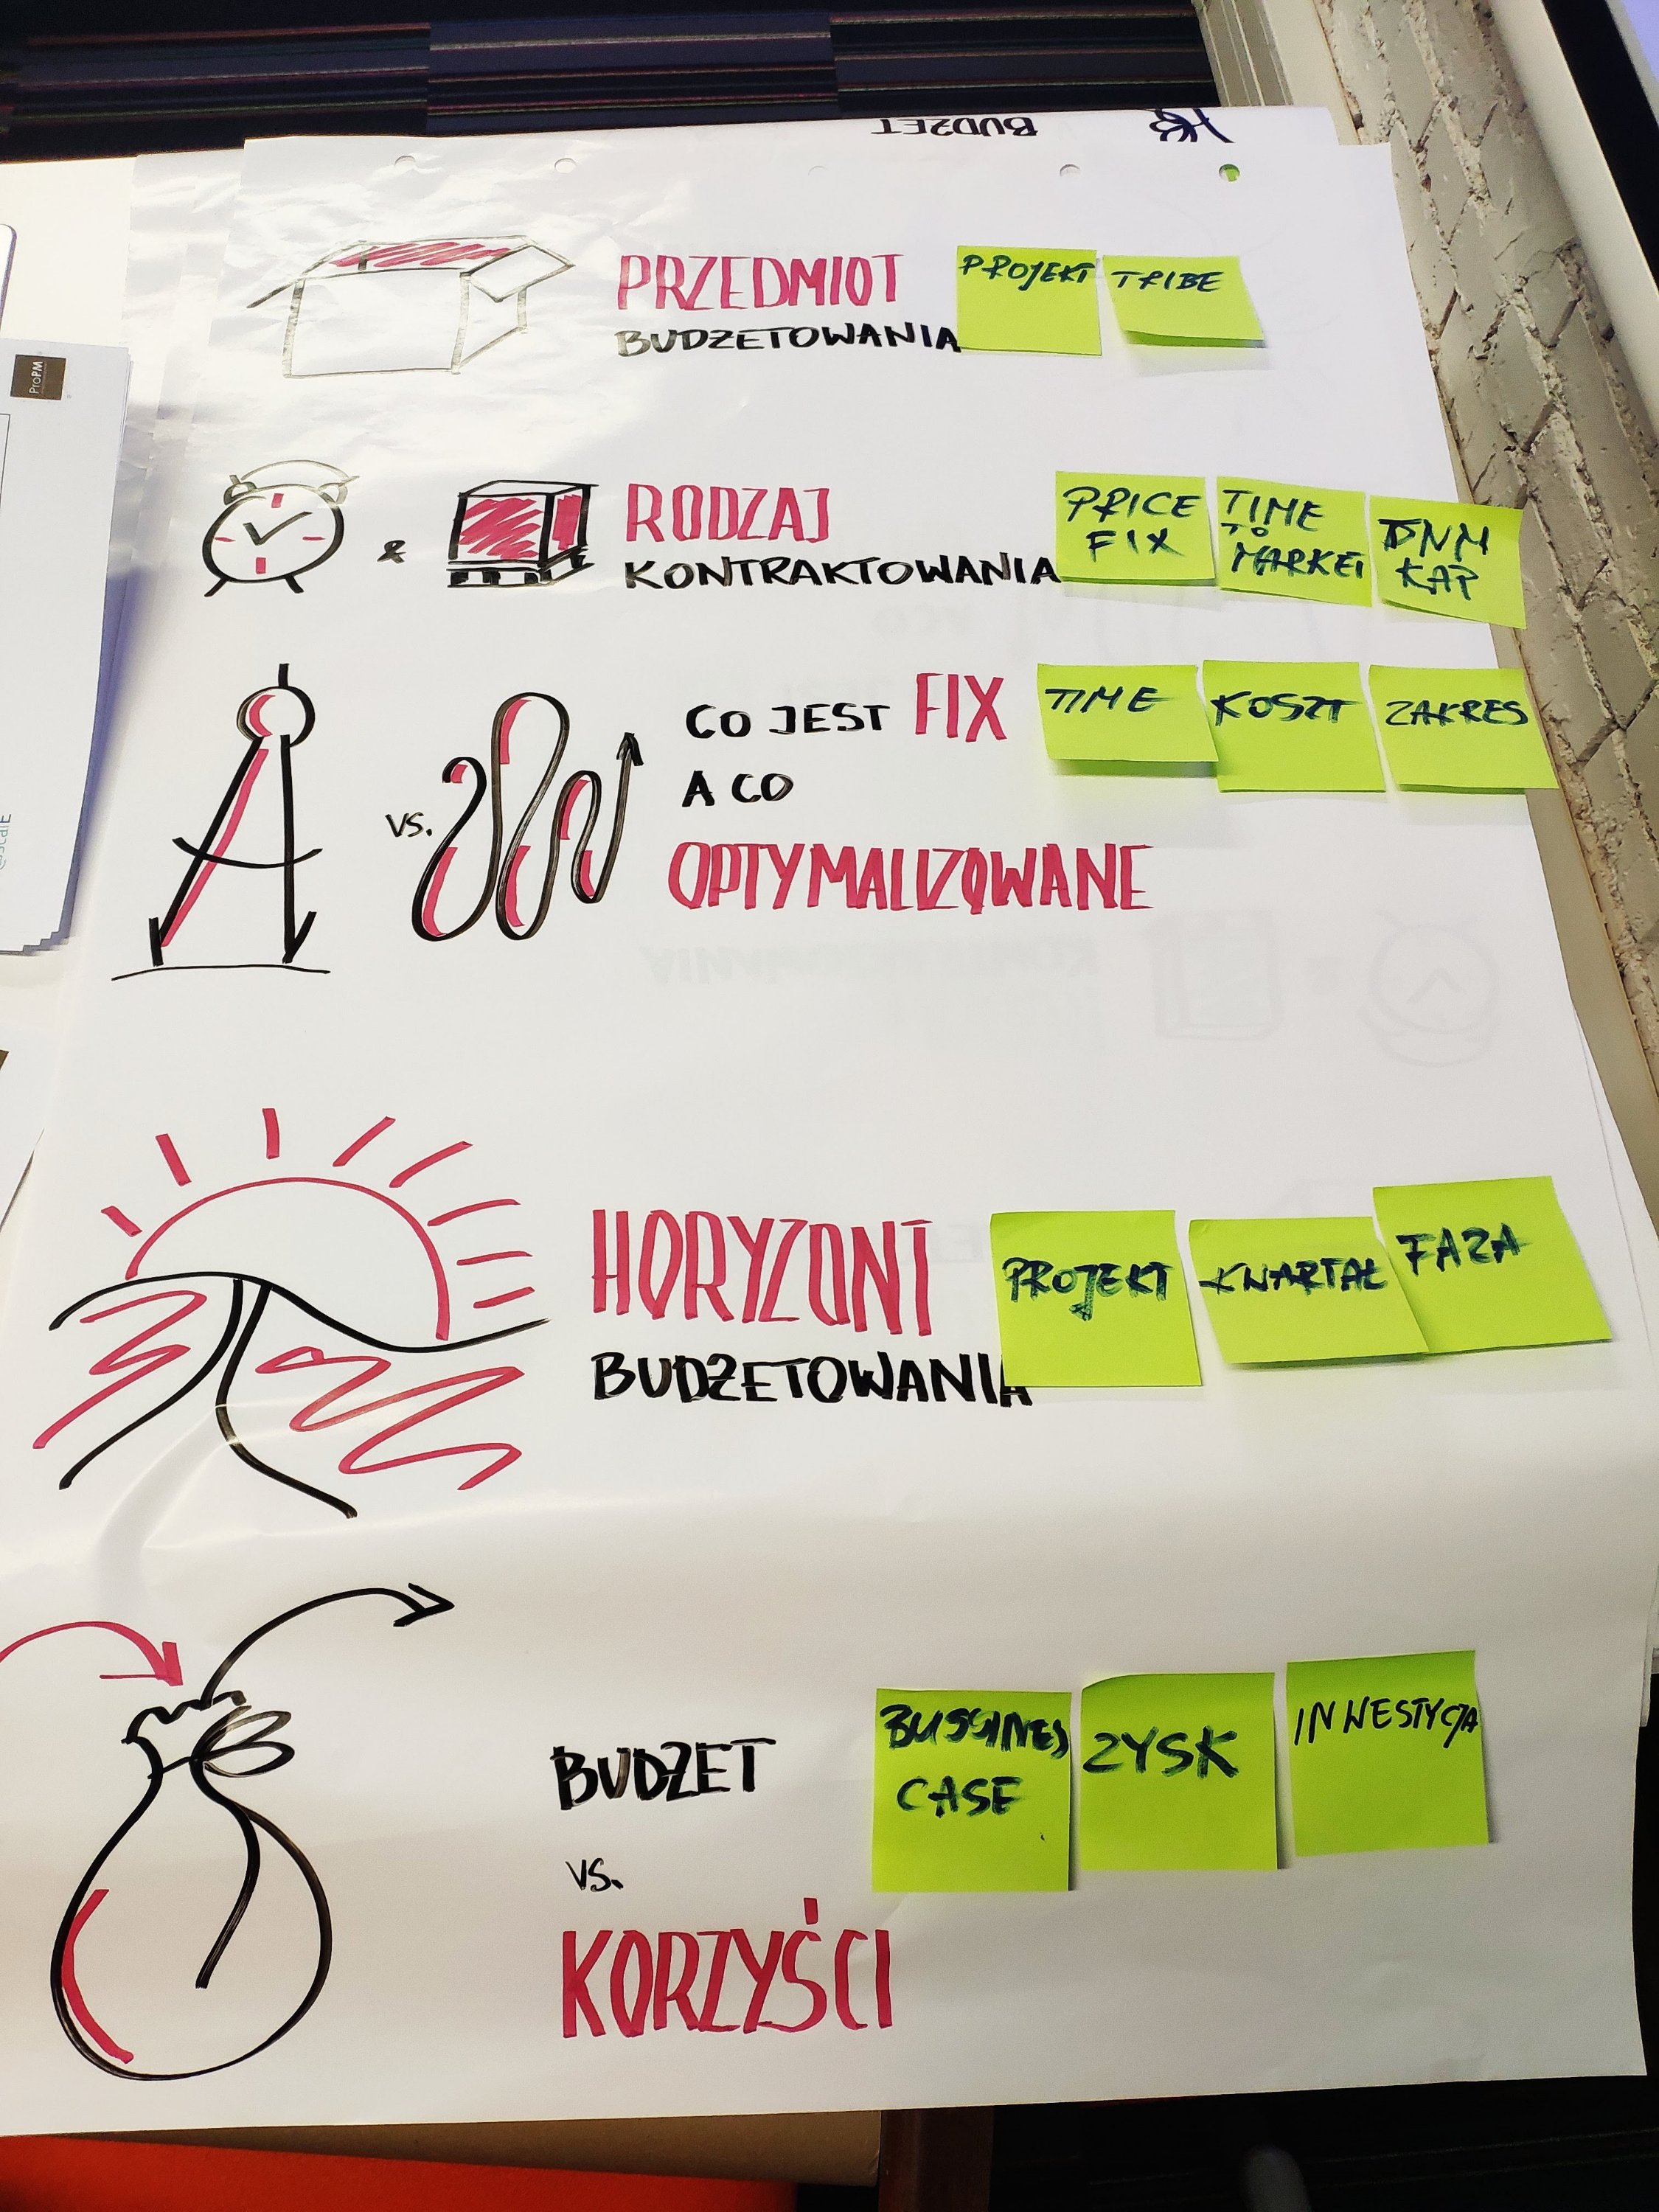 BUDŻET
PRZEDMIOT
BUDŻETOWANIA
PROJEKT
TRIBE
&
RODZAJ
KONTRAKTOWANIA
PRICE
FIX
TIME
TO
MARKET
KAP
VS.
CO JEST FIX
A CO
OPTYMALIZOWANE
TIME
KOSZT
ZAKRES
HORYZONT
BUDŻETOWANIA
PROJEKT
KWARTAŁ
FAZA
BUDŻET
VS.
KORZYŚCI
BUSSINES
CASE
ZYSK
INWESTYCJA
ProPM